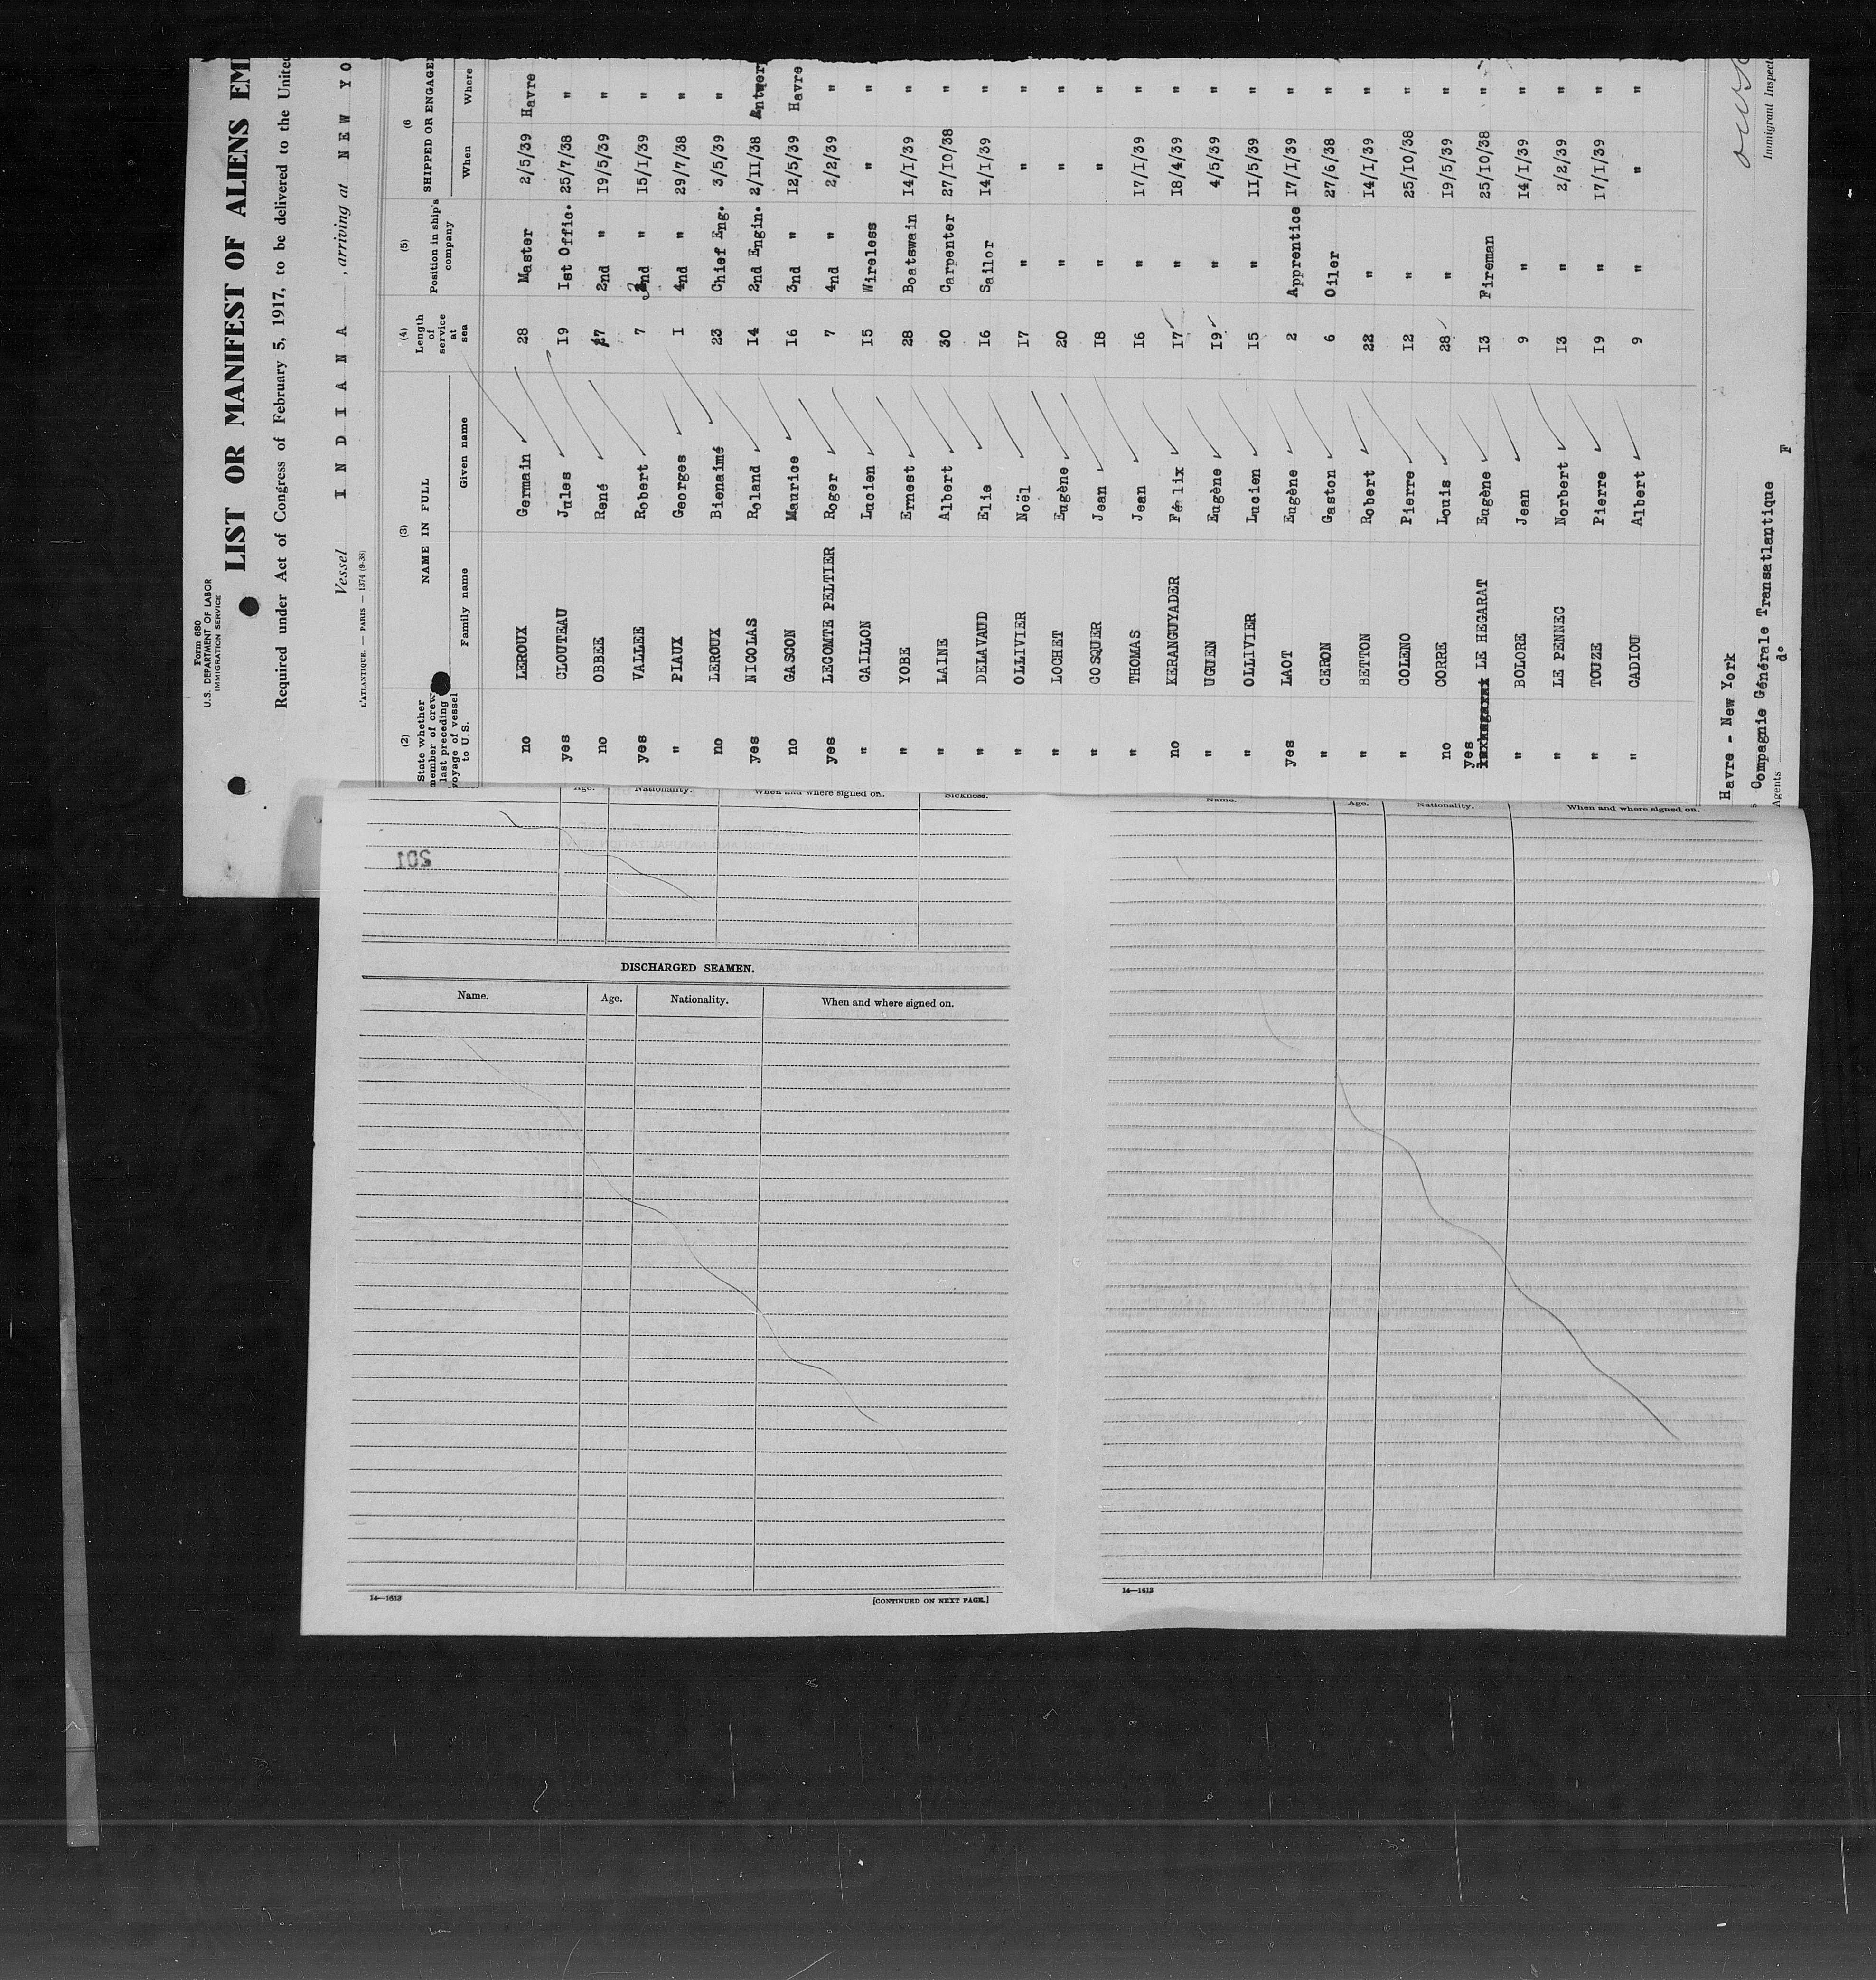 Form 680
U.S. DEPARTMENT OF LABOR
IMMIGRATION SERVICE
LIST OR MANIFEST OF ALIENS EM
Required under Act of Congress of February 5, 1917, to be delivered to the United
Vessel INDIANA, arriving at NEW YO
L'ATLANTIQUE. — PARIS — 1374 (9-38)
(2) (3) (4) (5) (6
State whether member of crew last preceding voyage of vessel to U.S. NAME IN FULL Length of service at sea Position in ship's company SHIPPED OR ENGAGED
Family name Given name When Where
no LEROUX Germain 28 Master 2/5/39 Havre
yes CLOUTEAU Jules 19 Ist Offic. 25/7/38 "
no OBBEE René 27 2nd " 19/5/39 "
yes VALLEE Robert 7 3nd " I5/I/39 "
" PIAUX Georges I 4nd " 29/7/38 "
no LEROUX Bienaimé 23 Chief Eng. 3/5/39 "
yes NICOLAS Roland I4 2nd Engin. 2/II/38 Antwer
no GASCON Maurice I6 3nd " I2/5/39 Havre
yes LECOMTE PELTIER Roger 7 4nd " 2/2/39 "
" CAILLON Lucien I5 Wireless " "
" YOBE Ernest 28 Boatswain I4/I/39 "
" LAINE Albert 30 Carpenter 27/IO/38 "
" DELAVAUD Elie I6 Sailor I4/I/39 "
" OLLIVIER Noël I7 " " "
" LOCHET Eugène 20 " " "
" COSQUER Jean I8 " " "
" THOMAS Jean I6 " I7/I/39 "
no KERANGUYADER Félix I7 " I8/4/39 "
" UGUEN Eugène I9 " 4/5/39 "
" OLLIVIER Lucien I5 " II/5/39 "
yes LAOT Eugène 2 Apprentice I7/I/39 "
" CERON Gaston 6 Oiler 27/6/38 "
" BETTON Robert 22 " I4/I/39 "
" COLENO Pierre I2 " 25/IO/38 "
no CORRE Louis 28 " I9/5/39 "
yes LE HEGARAT Eugène I3 Fireman 25/IO/38 "
" BOLORE Jean 9 " I4/I/39 "
" LE PENNEC Norbert I3 " 2/2/39 "
" TOUZE Pierre I9 " I7/I/39 "
" CADIOU Albert 9 " " "
Havre - New York
Immigrant Inspecto
s Compagnie Générale Transatlantique
Agents do F
Age. Nationality. When and where signed on. Sickness.
201
DISCHARGED SEAMEN.
Name. Age. Nationality. When and where signed on.
14—1613 [CONTINUED ON NEXT PAGE.]
Name. Age. Nationality. When and where signed on.
14—1613